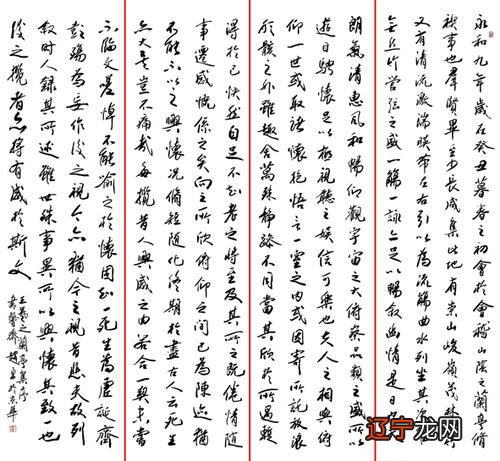 永和九年歲在癸丑暮春之初會於會稽山陰之蘭亭脩
禊事也群賢畢至少長咸集此地有崇山峻嶺茂林
又有清流激湍映帶左右引以為流觴曲水列坐其次
無絲竹管弦之盛一觴一詠亦足以暢敘幽情是日
朗氣清惠風和暢仰觀宇宙之大俯察品類之盛所以
遊目騁懷足以極視聽之娛信可樂也夫人之相與俯
仰一世或取諸懷抱悟言一室之內或因寄所託放浪
形骸之外雖趣舍萬殊靜躁不同當其欣於所遇暫
得於己快然自足不知老之將至及其所之既倦情隨
事遷感慨係之矣向之所欣俯仰之間已為陳迹猶
不能不以之興懷況脩短隨化終期於盡古人云死生
亦大矣豈不痛哉每攬昔人興感之由若合一契未嘗
不臨文嗟悼不能喻之於懷固知一死生為虛誕齊
彭殤為妄作後之視今亦猶今之視昔悲夫故列
敘時人錄其所述雖世殊事異所以興懷其致一也
後之攬者亦將有感於斯文
王羲之蘭亭集序
辽宁龙网